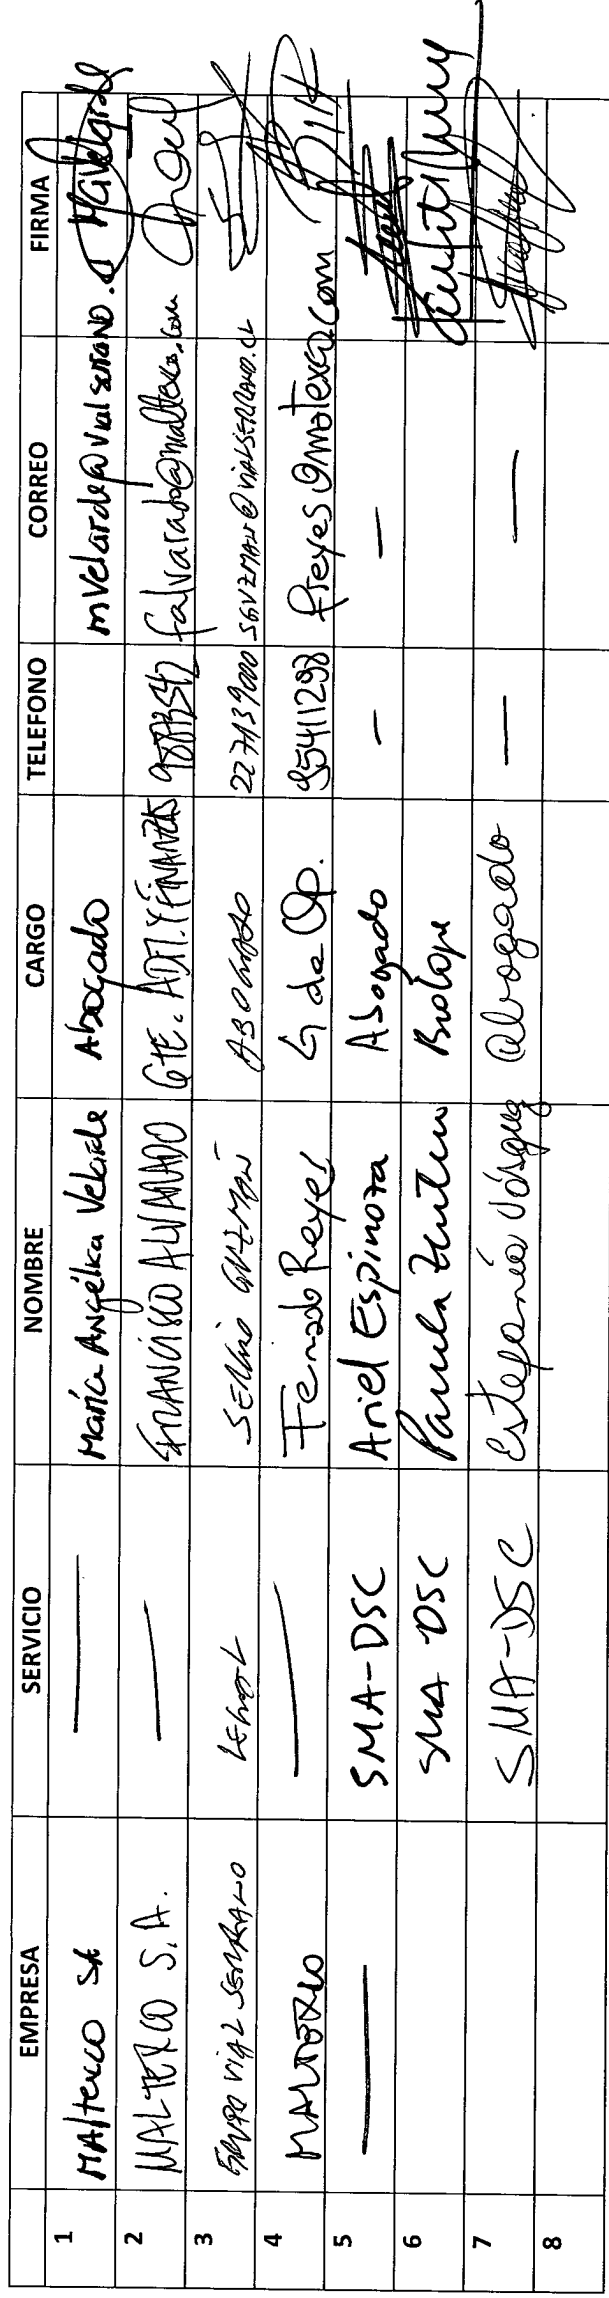 EMPRESA SERVICIO NOMBRE CARGO TELEFONO CORREO FIRMA
1 MAlterco SA — María Angélica Velarde Abogado mvelarde@vialserrano.cl MaVelarde
2 MALTEXCO S.A. — FRANCISCO ALVARADO GTE. ADM. Y FINANZAS falvarado@maltexco.com
3 GRUPO VIAL SERRANO LEGAL SERGIO GUZMAN ABOGADO 227139000 SGUZMAN@VIALSERRANO.CL
4 MALTEXCO — Fernado Reyes G de Op. 95411298 freyes@maltexco.com
5 — SMA-DSC Ariel Espinoza Abogado – –
6 SMA DSC Paula
7 SMA-DSC Estefanía Vásquez abogado — —
8